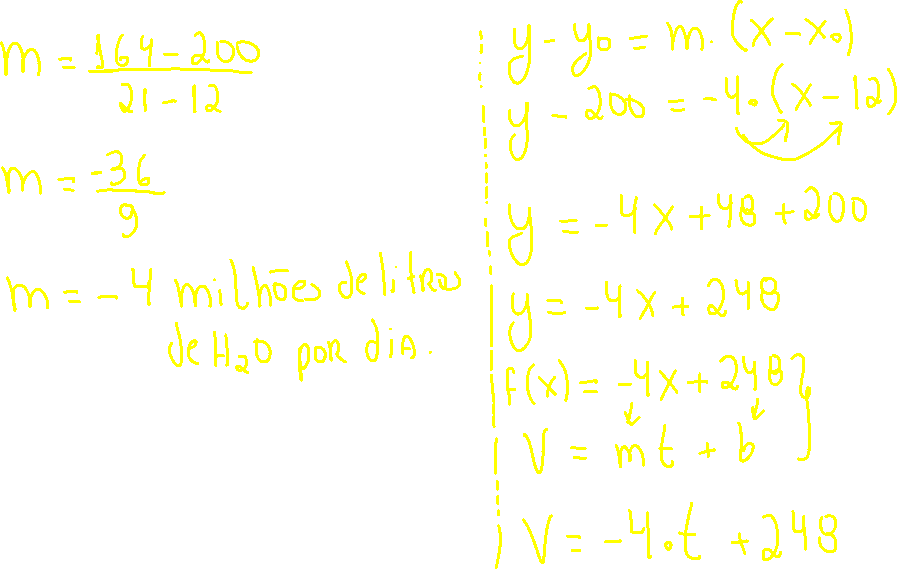 m = 164 - 200
21 - 12
m = -36
9
m = -4 milhões de litros
de H₂O por dia.
y - y₀ = m. (x - x₀)
y - 200 = -4. (x - 12)
y = -4x + 48 + 200
y = -4x + 248
f(x) = -4x + 248
V = mt + b
V = -4.t + 248